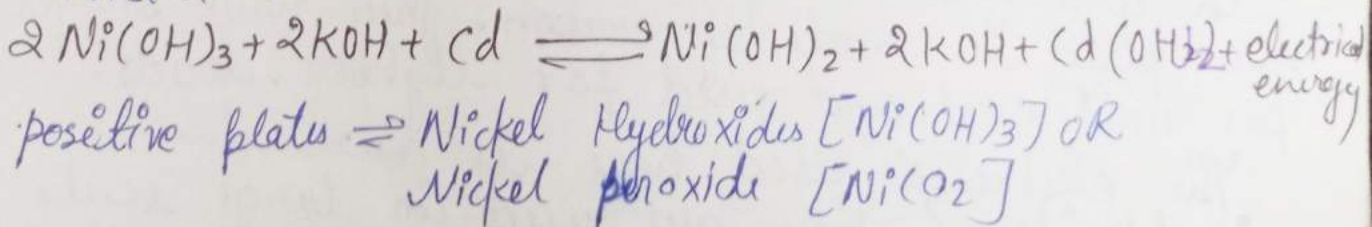 2 Ni(OH)3 + 2KOH + Cd ⇌ Ni(OH)2 + 2KOH + Cd(OH)2 + electrical
energy
positive plates ⇌ Nickel Hydroxides [Ni(OH)3] OR
Nickel peroxide [Ni(O2]